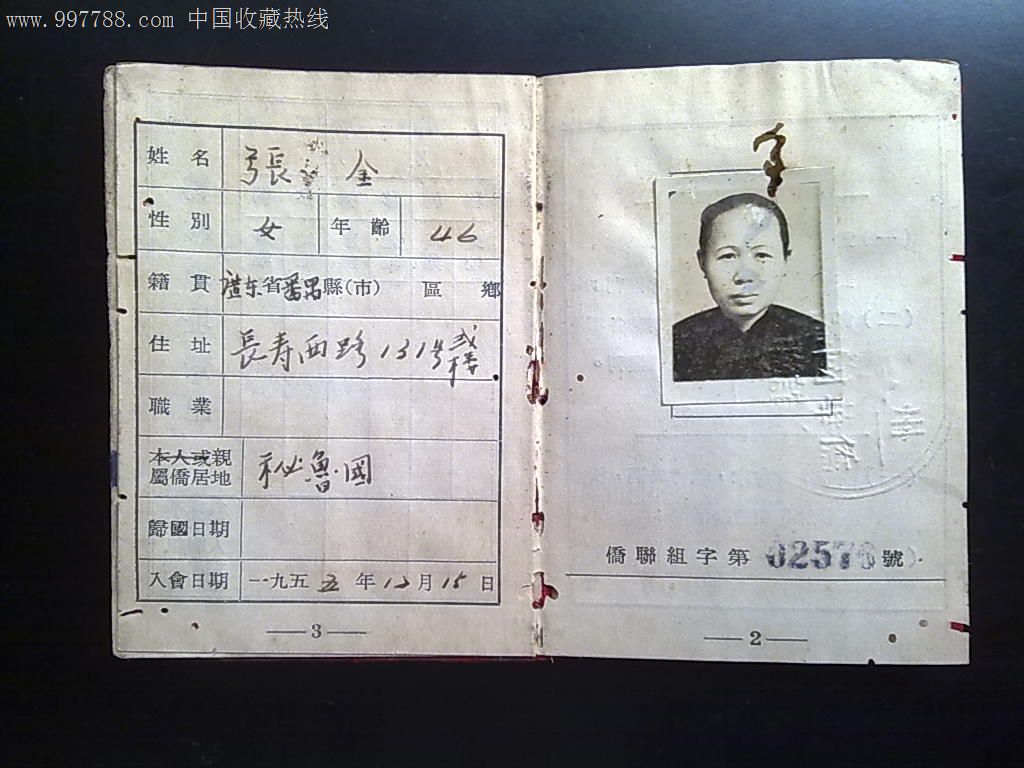 www.997788.com 中国收藏热线
姓名 張 金
性別 女 年齡 46
籍貫 廣东省番禺縣(市) 區 鄉
住址 長寿西路131号弍楼
職業
本人或親
屬僑居地 秘魯國
歸國日期
入會日期 一九五五年12月15日
3
僑聯組字第02576號
2